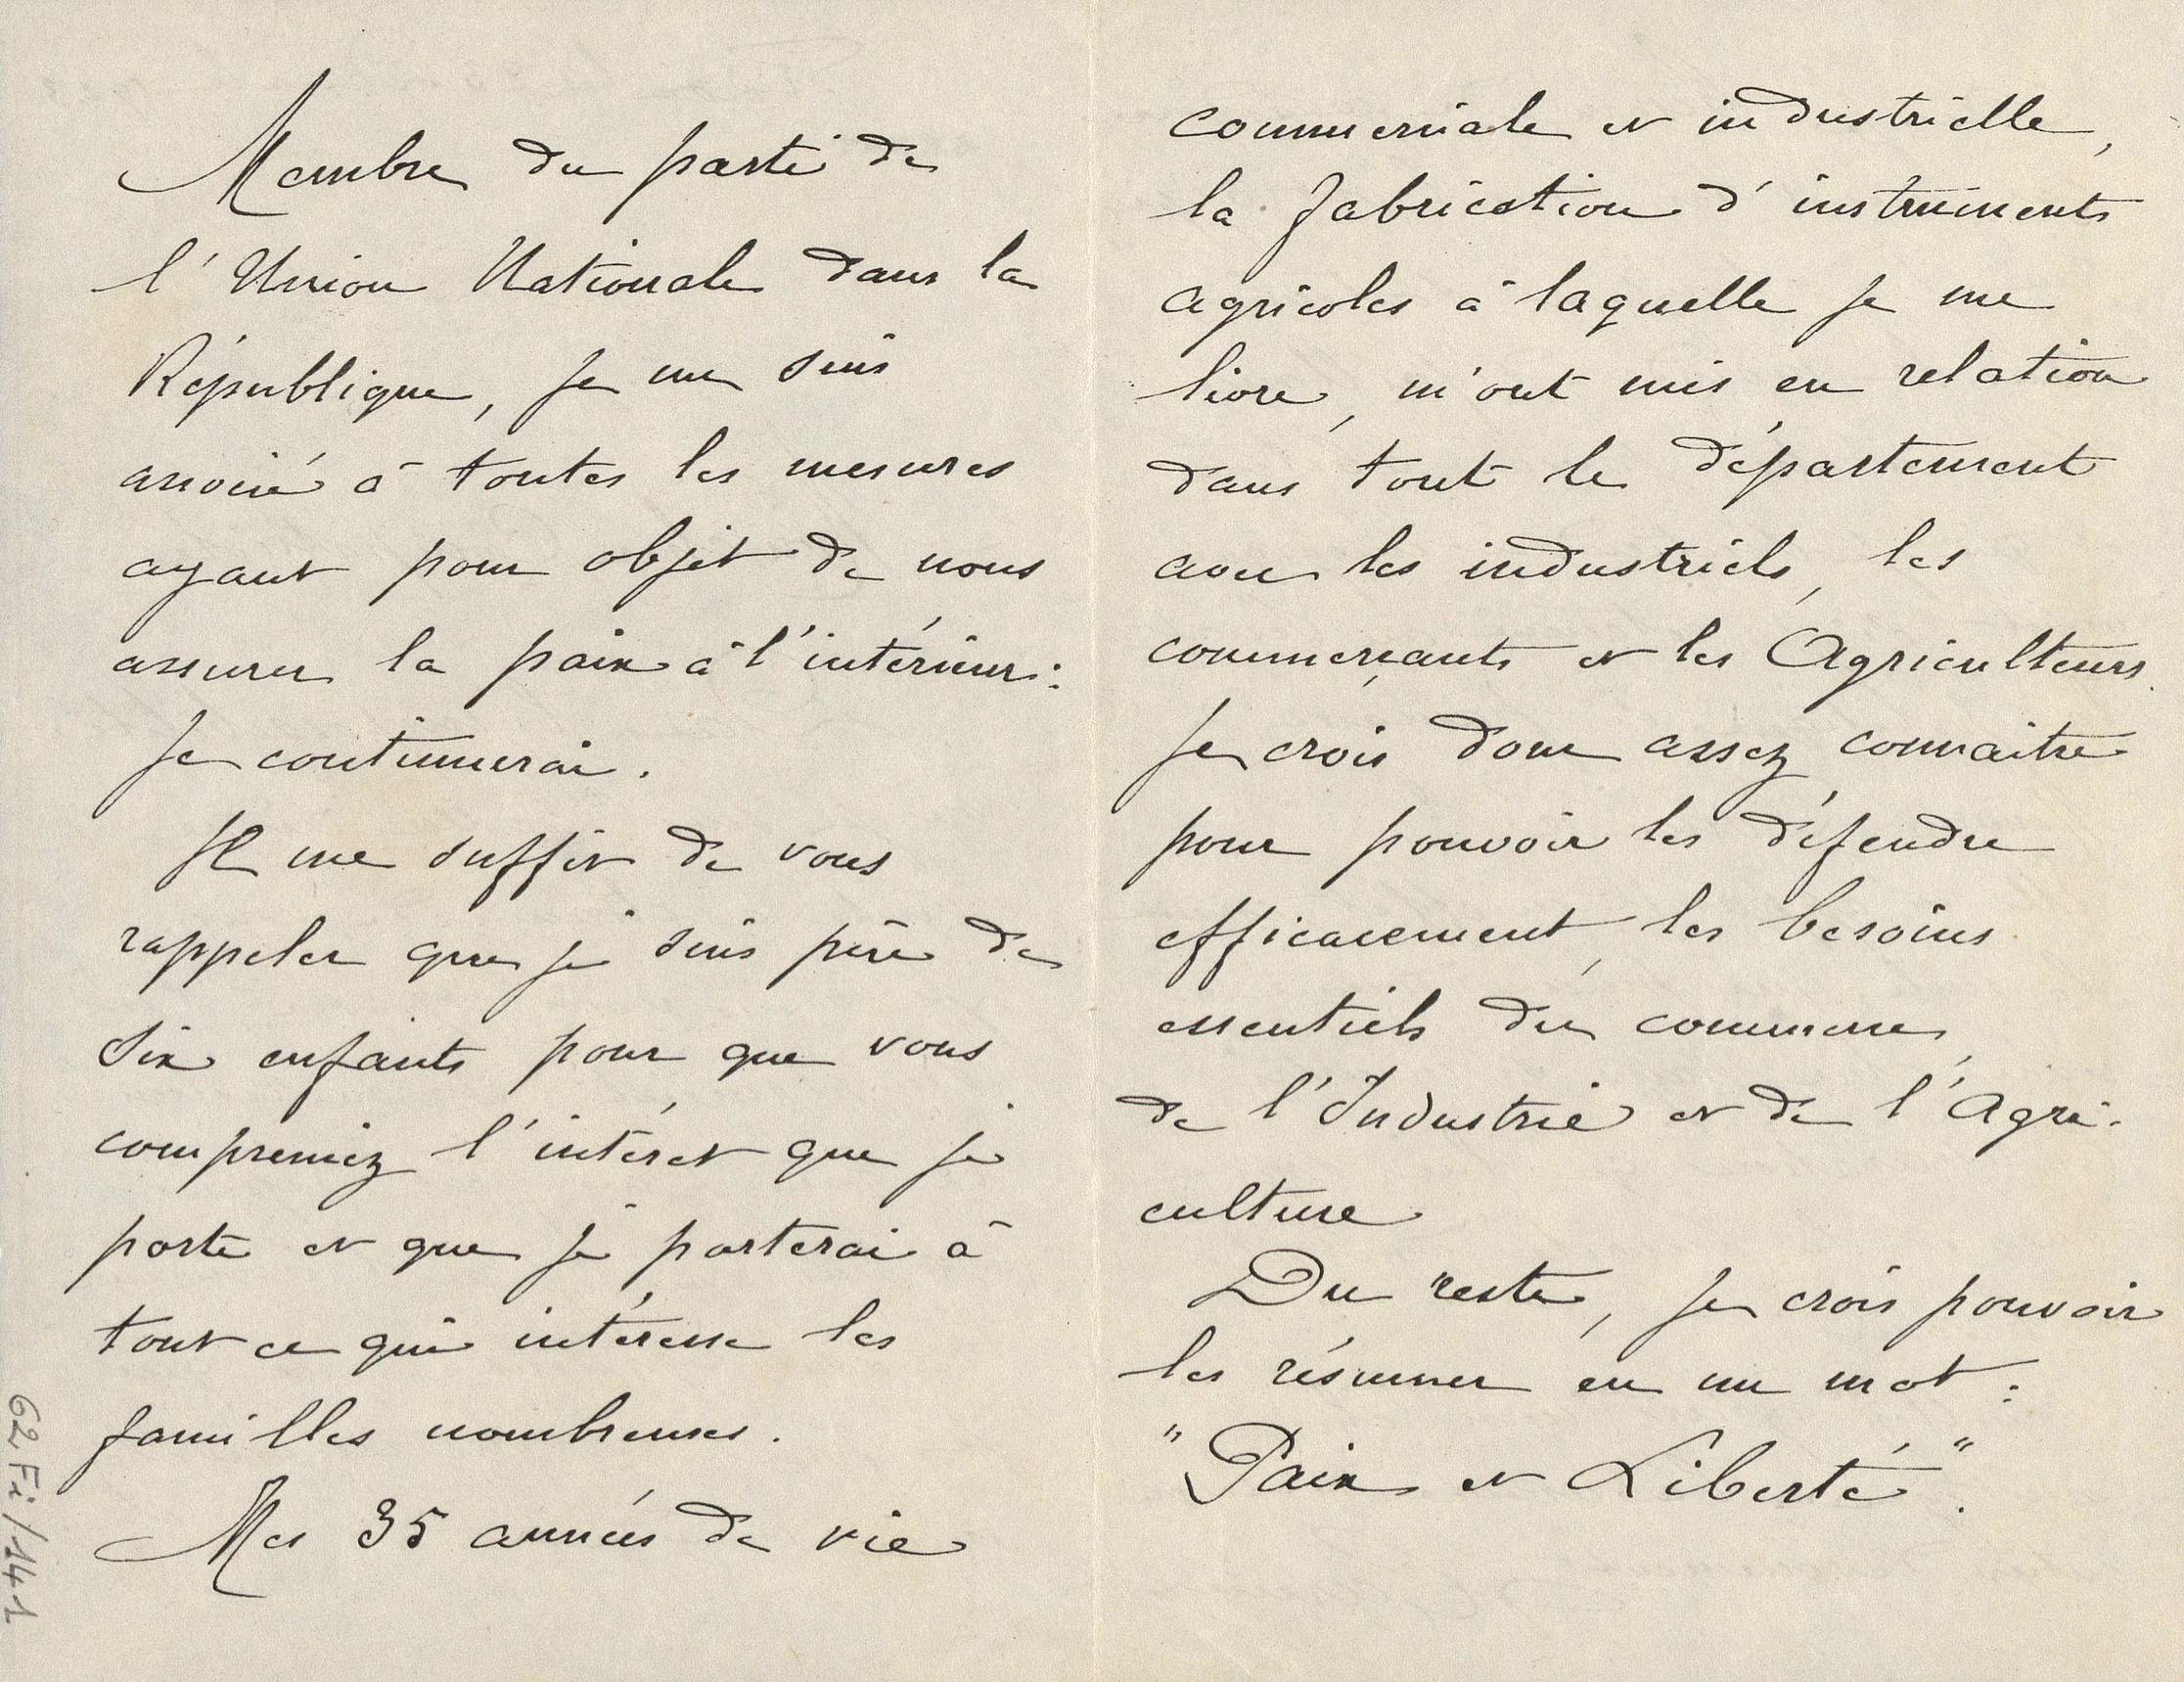 Membre du parti de
l'Union Nationale dans la
République, je me suis
associé à toutes les mesures
ayant pour objet de nous
assurer la paix à l'intérieur :
je continuerai.
Il me suffit de vous
rappeler que je suis père de
six enfants pour que vous
compreniez l'intérêt que je
porte et que je porterai à
tout ce qui intéresse les
familles nombreuses.
Mes 35 années de vie
commerciale et industrielle,
la fabrication d'instruments
agricoles à laquelle je me
livre, m'ont mis en relation
dans tout le département
avec les industriels, les
commerçants et les Agriculteurs.
Je crois donc assez connaitre
pour pouvoir les défendre
efficacement, les besoins
essentiels du commerce,
de l'Industrie et de l'Agri-
culture
Du reste, je crois pouvoir
les résumer en un mot :
"Paix et Liberté".
62 Fi/141